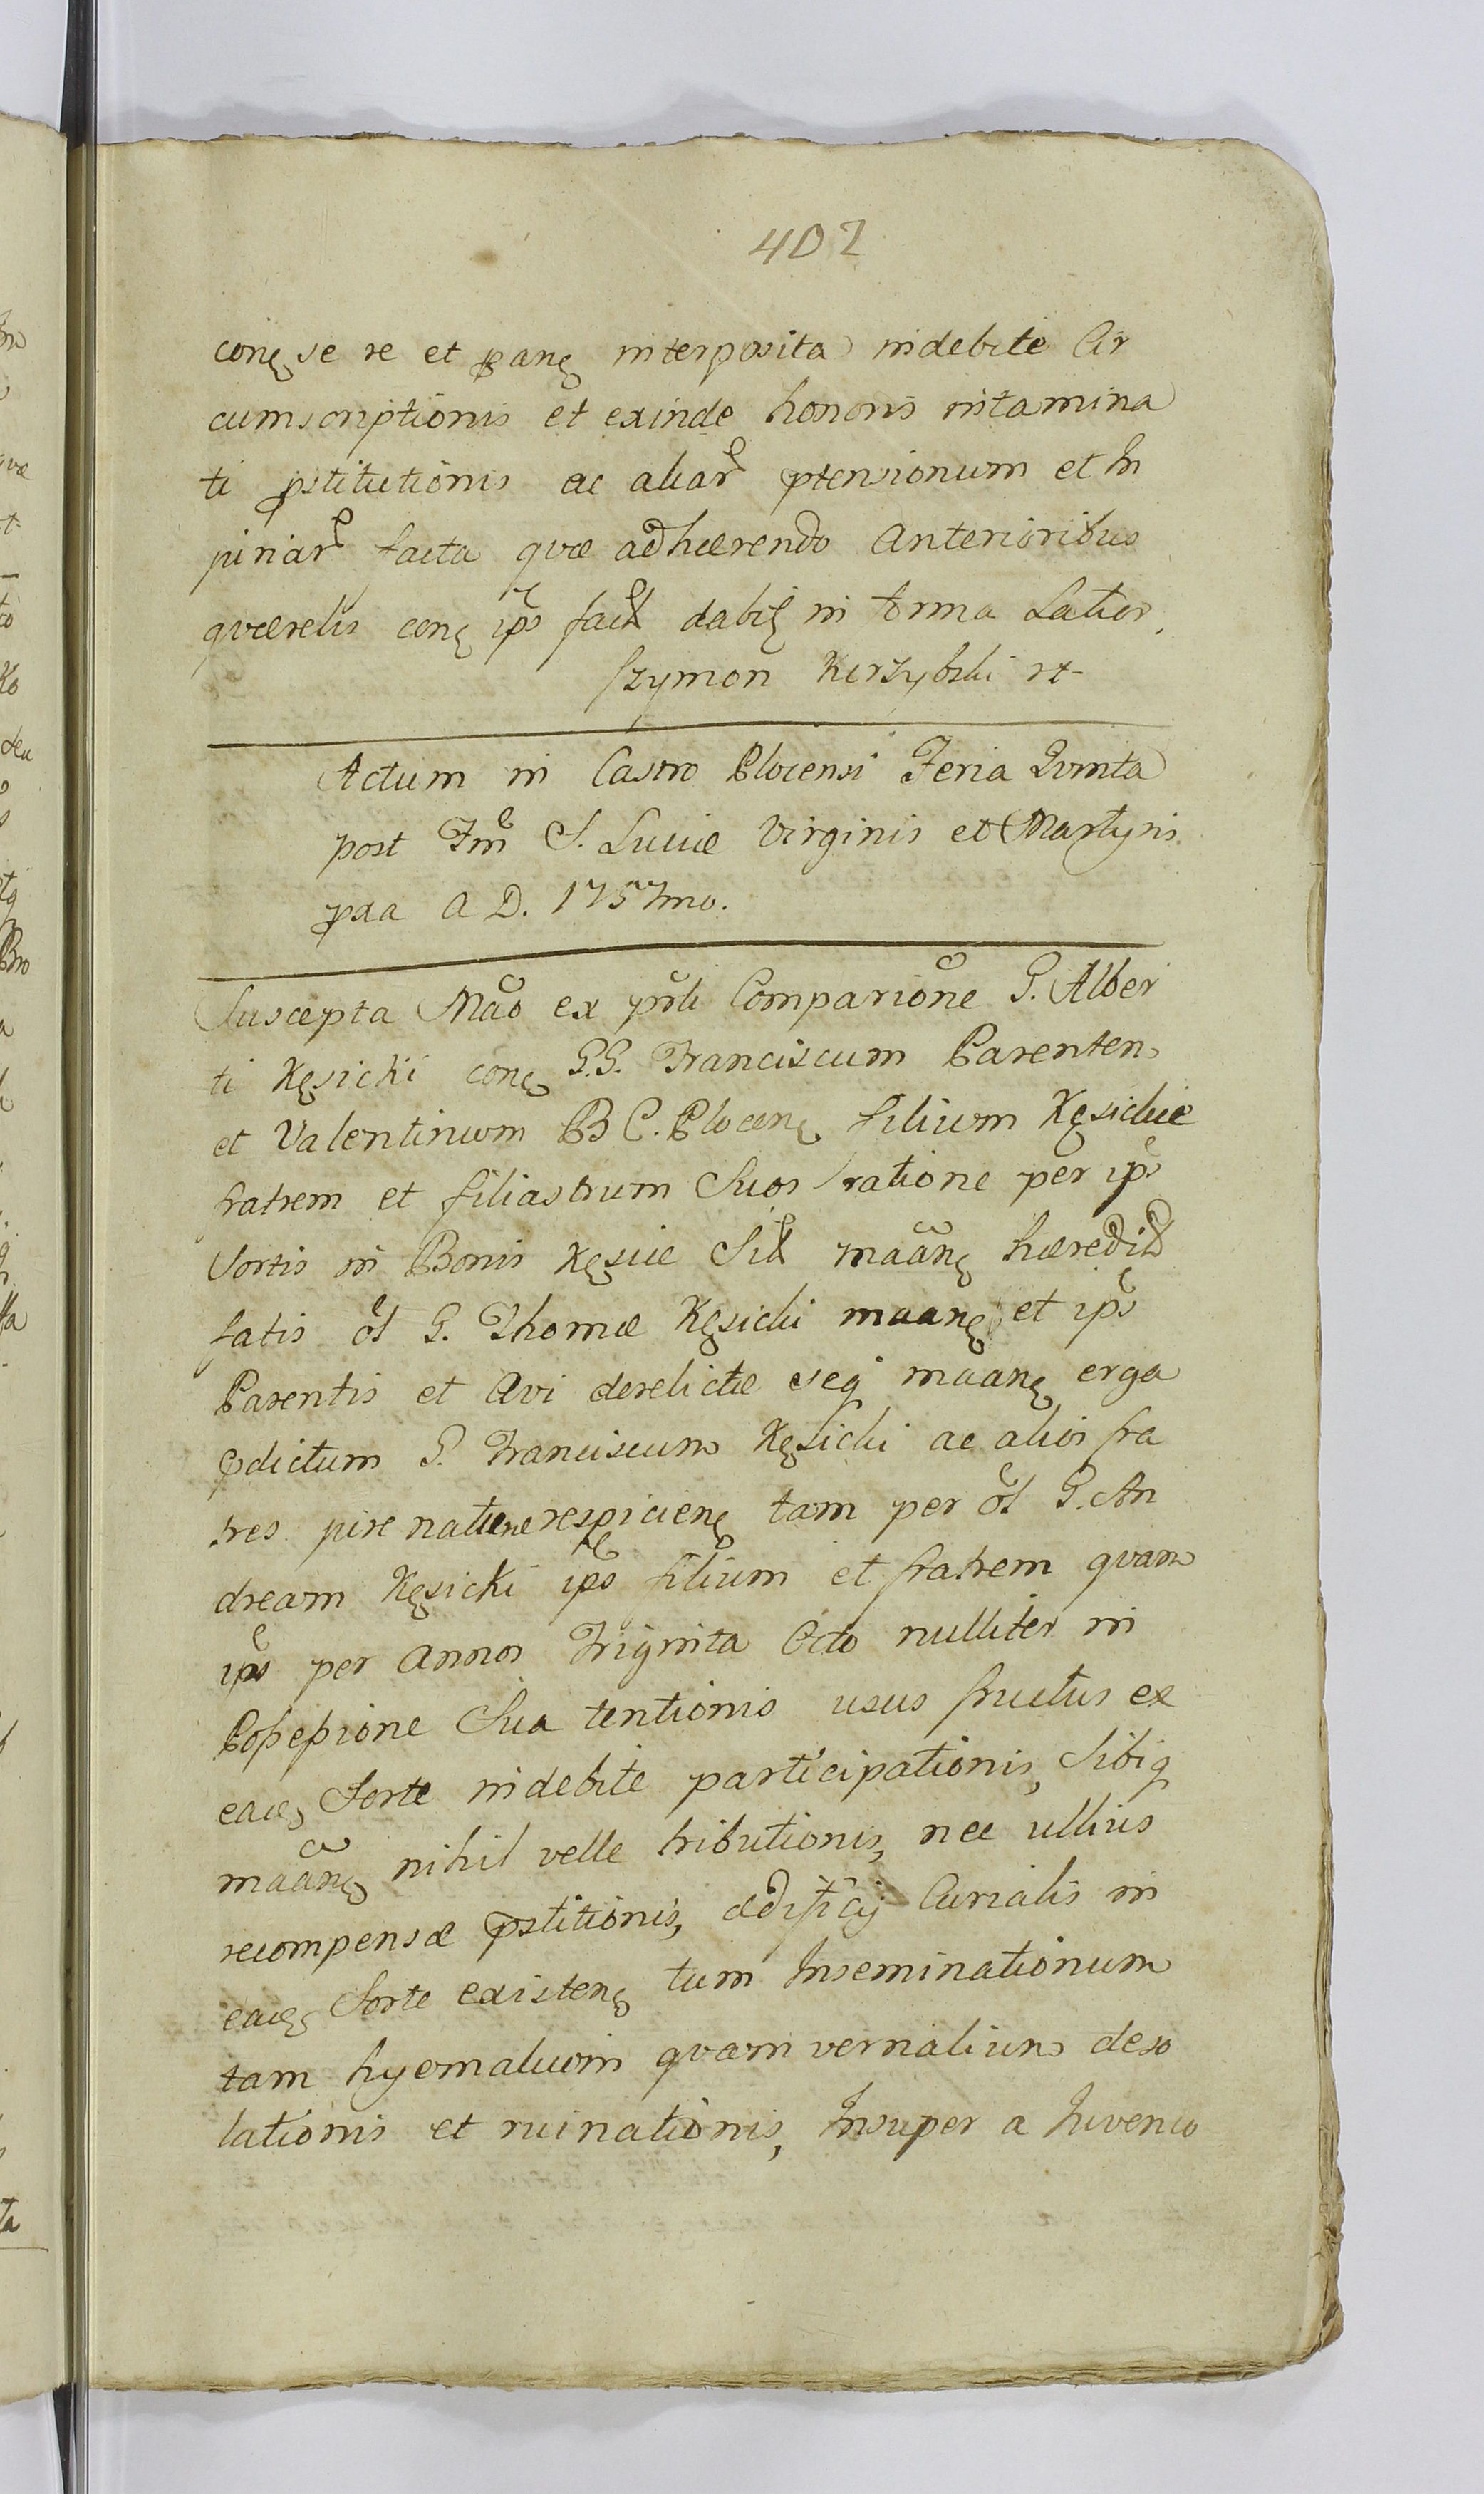 402
conę se re et panę interposita indebite Cir
cumscriptionis et exinde honoris intamina
ti pstitutionis ac aliar ptensionum et In
juriar facta quæ adhærendo Anterioribus
quærelis conę ips fact dabit in forma Latior.
Szymon Kerzybski rt
Actum in Castro Plocensi Feria Quinta
post Fm S. Luciæ Virginis et Martyris
pxa A D. 1757mo.
Suscepta Mao ex prli Comparione G. Alber
ti Kęsicki conę G.G. Franciscum Parentem
et Valentinum B C. Plocenę filium Kęsickie
fratrem et filiastrum Suos ratione per ips
Sortis in Bonis Kęsice Sit maanę hæredit
fatis ol G. Thomæ Kęsicki maanę et ips
Parentis et Avi derelictæ seq maanę erga
pdictum G. Franciscum Kęsicki ac alios fra
tres jure naturæ respicienę tam per ol G. An
dream Kęsicki ips filium et fratrem quam
ips per Annos Triginta Octo nulliter in
Possessione Sua tentionis usus fructus ex
eaę Sorte indebite participationis, Sibiq
maanę nihil velle tributionis, nec ullius
recompensæ pstitionis, ædificij Curialis in
eaę Sorte existenę tum Inseminationum
tam hyemalium quam vernalium deso
lationis et ruinationis, Insuper a Iuvenco